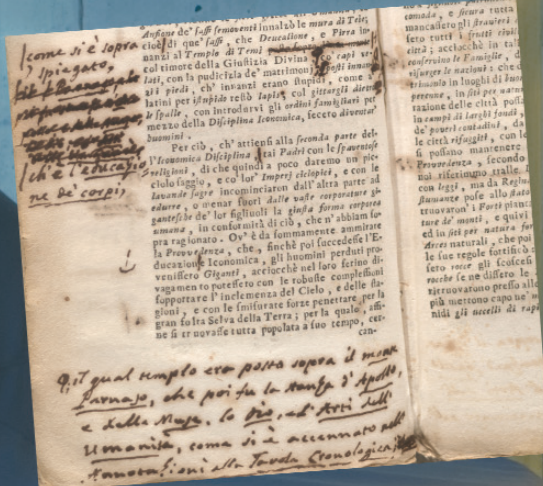 come si è sopra
spiegato,
ch'è l'educazio
ne de' corpi,
Anfione de' sassi semoventi innalzò le mura di Tebe,
cioè di que' sassi, che Deucalione, e Pirra in-
nanzi al Templo di Temi
col timore della Giustizia Divina, co' capi ve-
lati, con la pudicizia de' matrimonj, posti innan-
zi i piedi, ch' innanzi erano stupidi, come a'
latini per istupido restò lapis, col gittargli dietro
le spalle, con introdurvi gli ordini famigliari per
mezzo della Disciplina Iconomica, fecero diventar'
huomini.
Per ciò, ch' attiensi alla seconda parte del-
l'Iconomica Disciplina, tai Padri con le spaventose
religioni, di che quindi a poco daremo un pic-
ciolo saggio, e co' lor' Imperj ciclopici, e con le
lavande sagre incominciaron dall' altra parte ad
edurre, o menar fuori dalle vaste corporature gi-
gantesche de' lor figliuoli la giusta forma corporea
umana, in conformità di ciò, che n'abbiam so-
pra ragionato. Ov' è da sommamente ammirare
la Provvedenza, che, finchè poi succedesse l'E-
ducazione Iconomica, gli huomini perduti pro-
venissero Giganti, acciocchè nel loro ferino di-
vagamento potessero con le robuste complessioni
sopportare l' inclemenza del Cielo, e delle sta-
gioni, e con le smisurate forze penetrare per la
gran folta Selva della Terra; per la qual
ne si trovasse tutta popolata a suo tempo,
can-
il qual templo era posto sopra il monte
Parnaso, che poi fu la stanza d' Apollo,
e delle Muse, lo Dio, ed Arti dell'
Umanità, come si è accennato nell'
Annotazioni alla Tavola Cronologica;
comoda, e sicura tutta
mancassero gli stranieri
sero tutti i frutti civili
città; acciocchè in tal
conservino le Famiglie, d
risurger le nazioni: che
trino in luoghi di buon
perenne, in siti per natura
razione delle città possa
in campi di larghi fondi,
de' poveri contadini, da
le città rifuggiti, con le
si possano mantenere
Provvedenza, secondo
noi riferimmo tralle
con leggi, ma da Regina
stumanze pose allo stato
trovaron' i Forti piantar
ture de' monti, e quivi
ed in siti per natura for
Arces naturali, che poi
le sue regole fortificò
sero rocce gli scoscesi
rocche se ne dissero le
ritruovarono presso alle
più mettono capo ne'
nidi gli uccelli di rapi